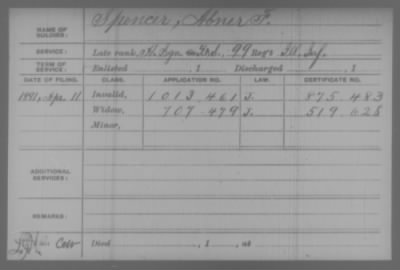 NAME OF SOLDIER: Spencer, Abner F.
SERVICE: Late rank, Regt Ill. Inf.
TERM OF SERVICE: Enlisted , 1 Discharged , 1
DATE OF FILING. CLASS. APPLICATION NO. LAW. CERTIFICATE NO.
1891, Apr. 11 Invalid, 1013.461 J. 875.483
Widow, 707.479 J. 519.628
Minor,
ADDITIONAL SERVICES:
REMARKS:
Died , 1 , at